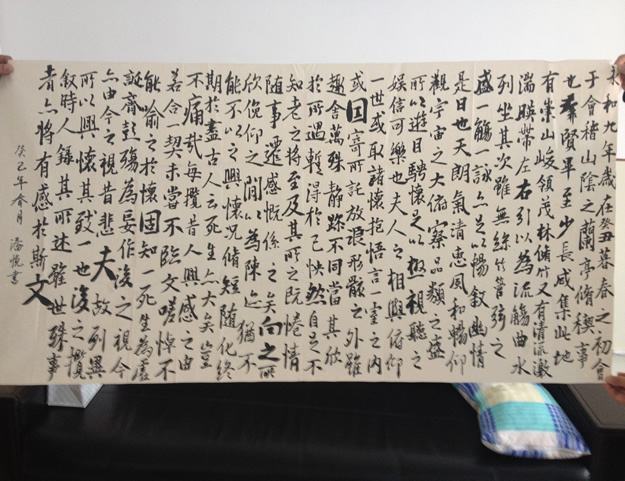 永和九年歲在癸丑暮春之初會
于會稽山陰之蘭亭脩稧事
也羣賢畢至少長咸集此地
有崇山峻領茂林脩竹又有清流激
湍暎帶左右引以為流觴曲水
列坐其次雖無絲竹管弦之
盛一觴一詠亦足以暢叙幽情
是日也天朗氣清惠風和暢仰
觀宇宙之大俯察品類之盛
所以遊目騁懷足以極視聽之
娛信可樂也夫人之相與俯仰
一世或取諸懷抱悟言一室之內
或因寄所託放浪形骸之外雖
趣舍萬殊靜躁不同當其欣
於所遇暫得於己怏然自足不
知老之將至及其所之既惓情
隨事遷感慨係之矣向之所
欣俛仰之閒以為陳迹猶不
能不以之興懷況脩短隨化終
期於盡古人云死生亦大矣豈
不痛哉每攬昔人興感之由
若合一契未嘗不臨文嗟悼不
能喻之於懷固知一死生為虛
誕齊彭殤為妄作後之視今
亦由今之視昔悲夫故列異
所以興懷其致一也後之攬
叙時人錄其所述雖世殊事
者亦將有感於斯文
癸巳年春月潘悅書